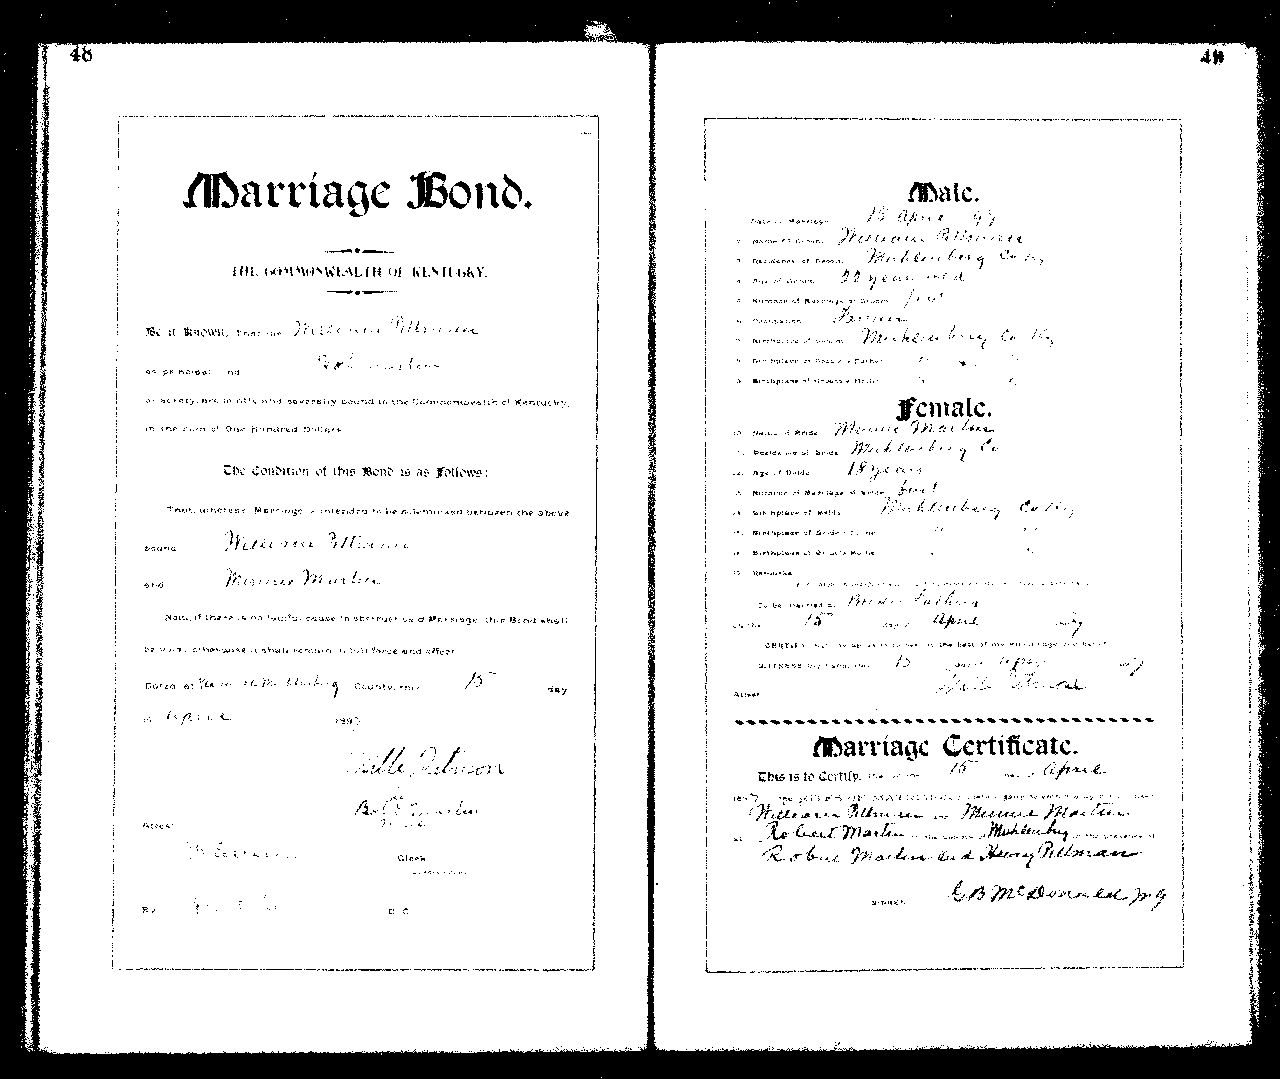 48
Marriage Bond.
THE COMMONWEALTH OF KENTUCKY.
Be it Known, That we William Pittman
as principal and Bob Martin
as surety, are jointly and severally bound in the Commonwealth of Kentucky,
in the sum of One Hundred Dollars
The Condition of this Bond is as Follows:
That, whereas Marriage is intended to be solemnized between the above
bound William Pittman
and Minnie Martin
Now, if there is no lawful cause to obstruct said Marriage, this Bond shall
be void, otherwise it shall remain in full force and effect
Dated at Muhlenberg County, this 15 day
of April 1897
Wille Pitmon
Bob Martin
Attest
Clerk
By D. C.
49
Male.
Date of Marriage 15 April 97
Name of Groom William Pittman
Residence of Groom Muhlenberg Co Ky
Age of Groom 22 years old
Number of Marriage of Groom first
Occupation Farmer
Birthplace of Groom Muhlenberg Co Ky
Birthplace of Groom's Father " " "
Birthplace of Groom's Mother " "
Female.
Name of Bride Minnie Martin
Residence of Bride Muhlenberg Co
Age of Bride 18 years
Number of Marriage of Bride first
Birthplace of Bride Muhlenberg Co Ky
Birthplace of Bride's Father " "
Birthplace of Bride's Mother " "
Remarks
To be married at Brides Fathers
on the 15 day of April 1897
I CERTIFY that the above is correct, to the best of my knowledge and belief
WITNESS my hand, this 15 day of April 1897
Attest
Marriage Certificate.
This is to Certify, that on the 15 day of April
1897 the rites of marriage
William Pittman and Minnie Martin
at Robert Martin in the county of Muhlenberg in the presence of
Robert Martin and Henry Pittman
SIGNED G B McDonald